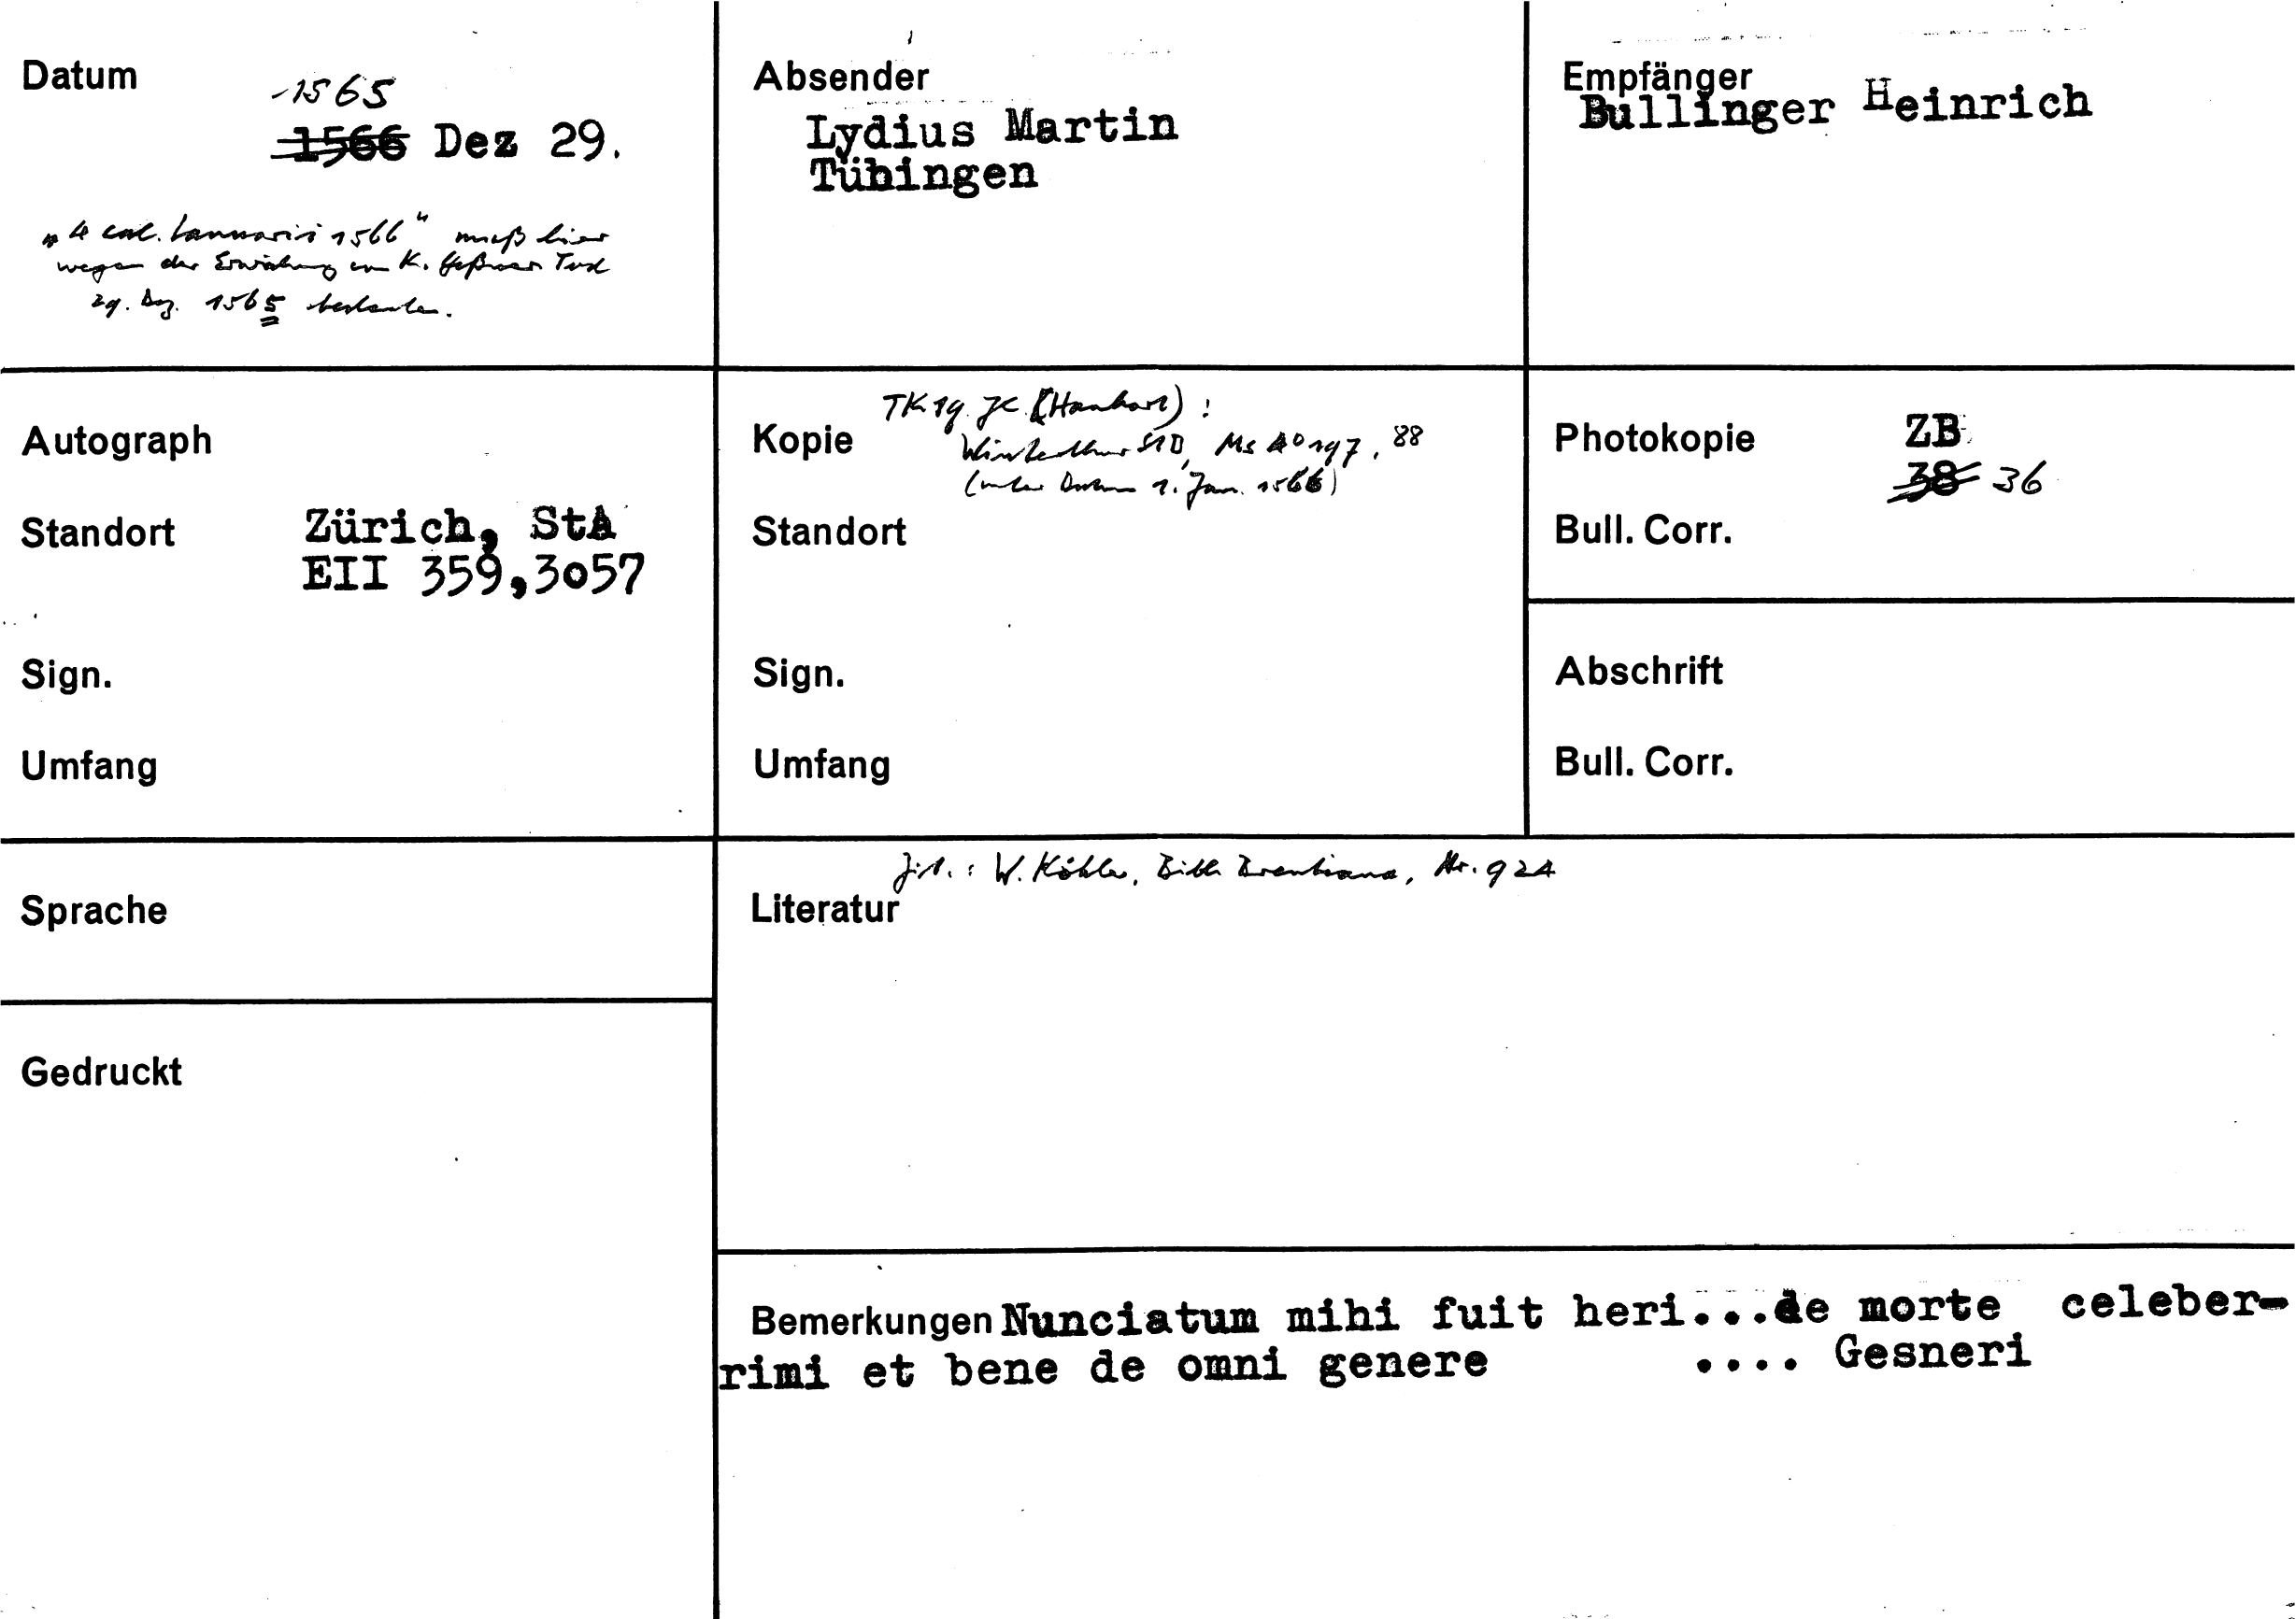 Datum
1565
1566 Dez 29.
"4 cal. Ianuarii 1566" muß hier
wegen der Erwähnung von K. Geßners Tod
29. Dez. 1565 bedeuten.
Absender
Lydius Martin
Tübingen
Empfänger
Bullinger Heinrich
Autograph
Standort Zürich, StA
EII 359,3057
Sign.
Umfang
TK 19. Jc. (Hanhart):
Kopie Winterthur StB, Ms A° 197, 88
(unter Datum 1. Jan. 1566)
Standort
Sign.
Umfang
Photokopie ZB
38 36
Bull. Corr.
Abschrift
Bull. Corr.
Sprache
Zit.: W. Köhler, Bibl. Brentiana, Nr. 924
Literatur
Gedruckt
Bemerkungen Nunciatum mihi fuit heri...de morte celeber-
rimi et bene de omni genere .... Gesneri